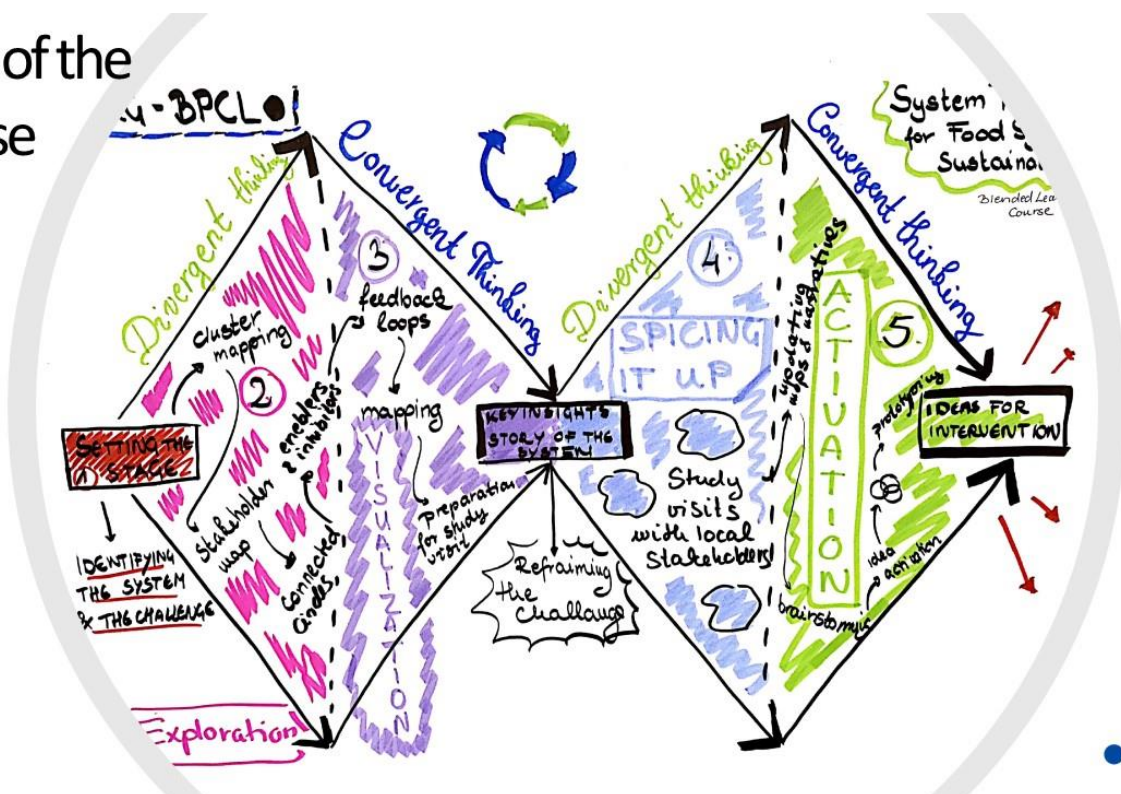 of the
se
BPCL
System
for Food S
Sustaina
Blended Lea
Course
Divergent thinking
Convergent Thinking
Drivergent thinking
Convergent thinking
SETTING THE
STAGE
1
IDENTIFYING
THE SYSTEM
& THE CHALLENGE
Exploration
2
cluster
mapping
stakeholder
map
connected
circles
enablers
& inhibitors
3
feedback
loops
mapping
preparation
for study
visit
VISUALIZATION
KEY INSIGHTS
STORY OF THE
SYSTEM
Refraiming
the
challange
4
SPICING
IT UP
Study
visits
with local
Stakeholders
updating
maps & narratives
5
ACTIVATION
brainstoming
idea
activation
prototyping
IDEAS FOR
INTERVENTION